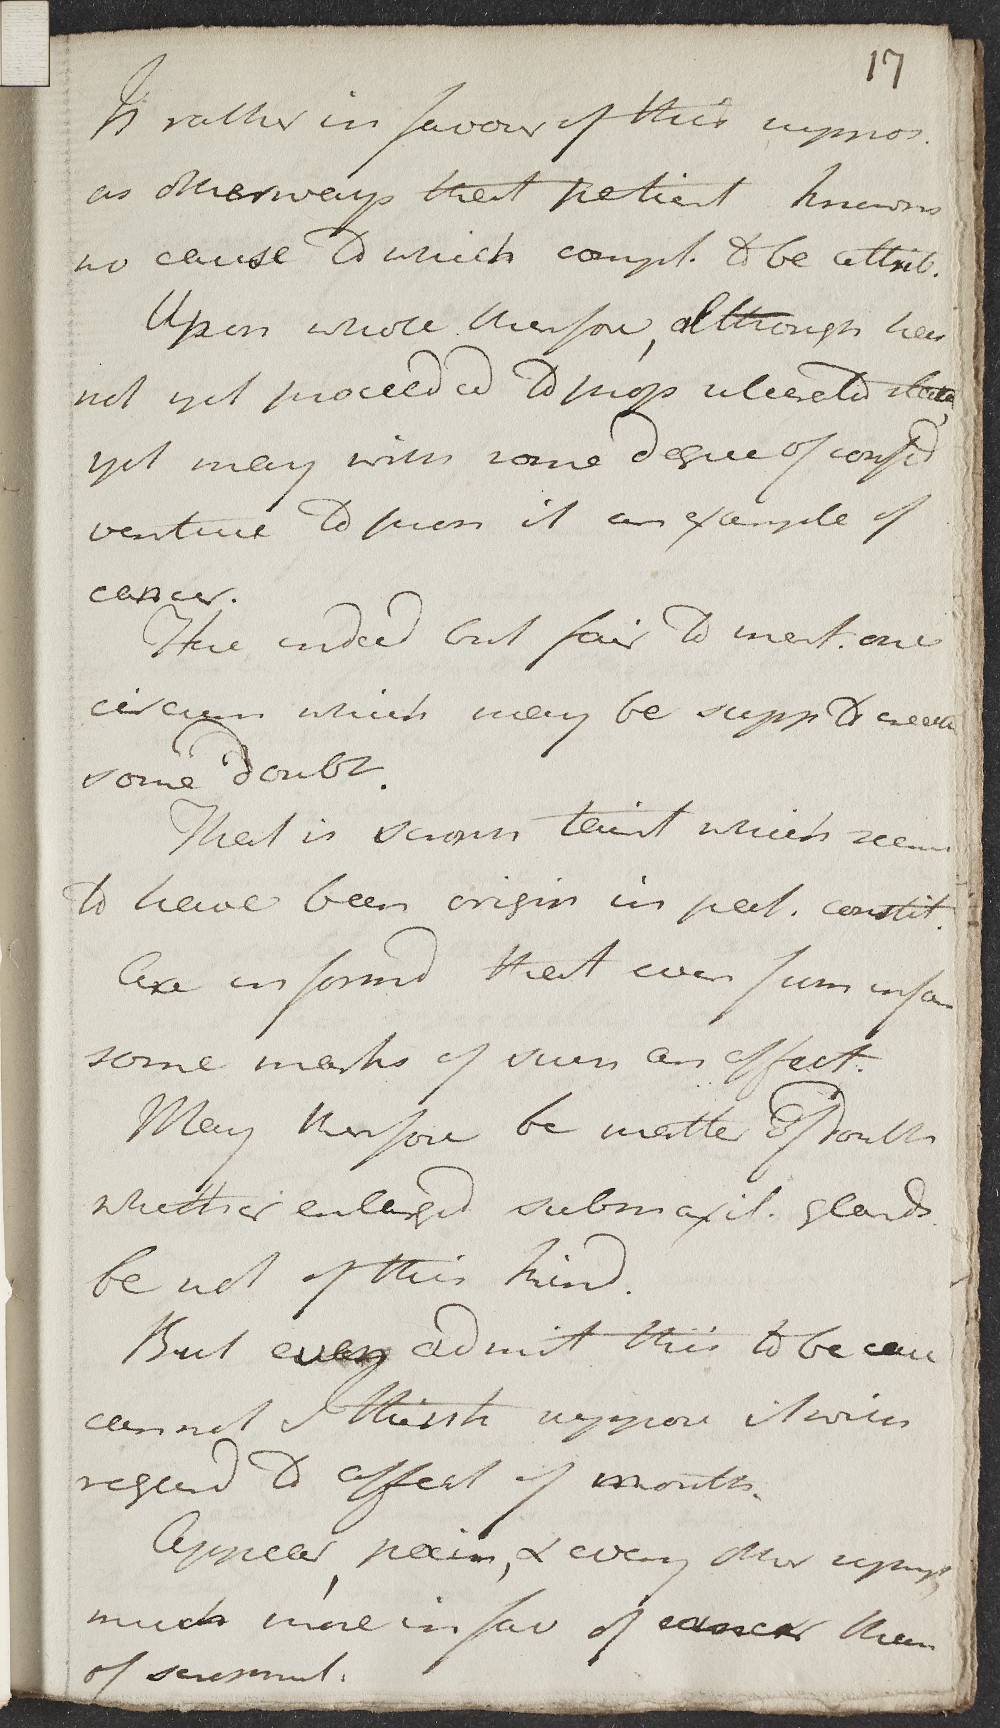 17
Is rather in favour of this suppos.
as otherways that patient knows
no cause to which compl. to be attrib.
Upon whole therfore, although has
not yet proceeded to prop ulcerated state,
yet may with some degree of confid
venture to pron it an example of
cancer.
Here indeed but fair to ment. one
circum which may be supp to create
some doubt.
That is scroph taint which seems
to have been origin in pat. constit.
Are informd that even from infan
some marks of such an affect.
May therfore be matter of doubt
whether enlargd submaxil. glands
be not of this kind.
But even admit this to be case
cannot I think suppose it with
regard to affect of mouth.
Appear, pain, & every other sympt,
much more in fav of cancer than
of